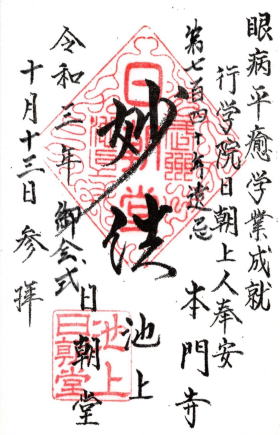 眼病平癒学業成就
行学院日朝上人奉安
第七百四十年遠忌
本門寺
妙法
池上
日朝堂
御会式
令和三年
十月十三日参拝
日朝堂
池上
日朝堂